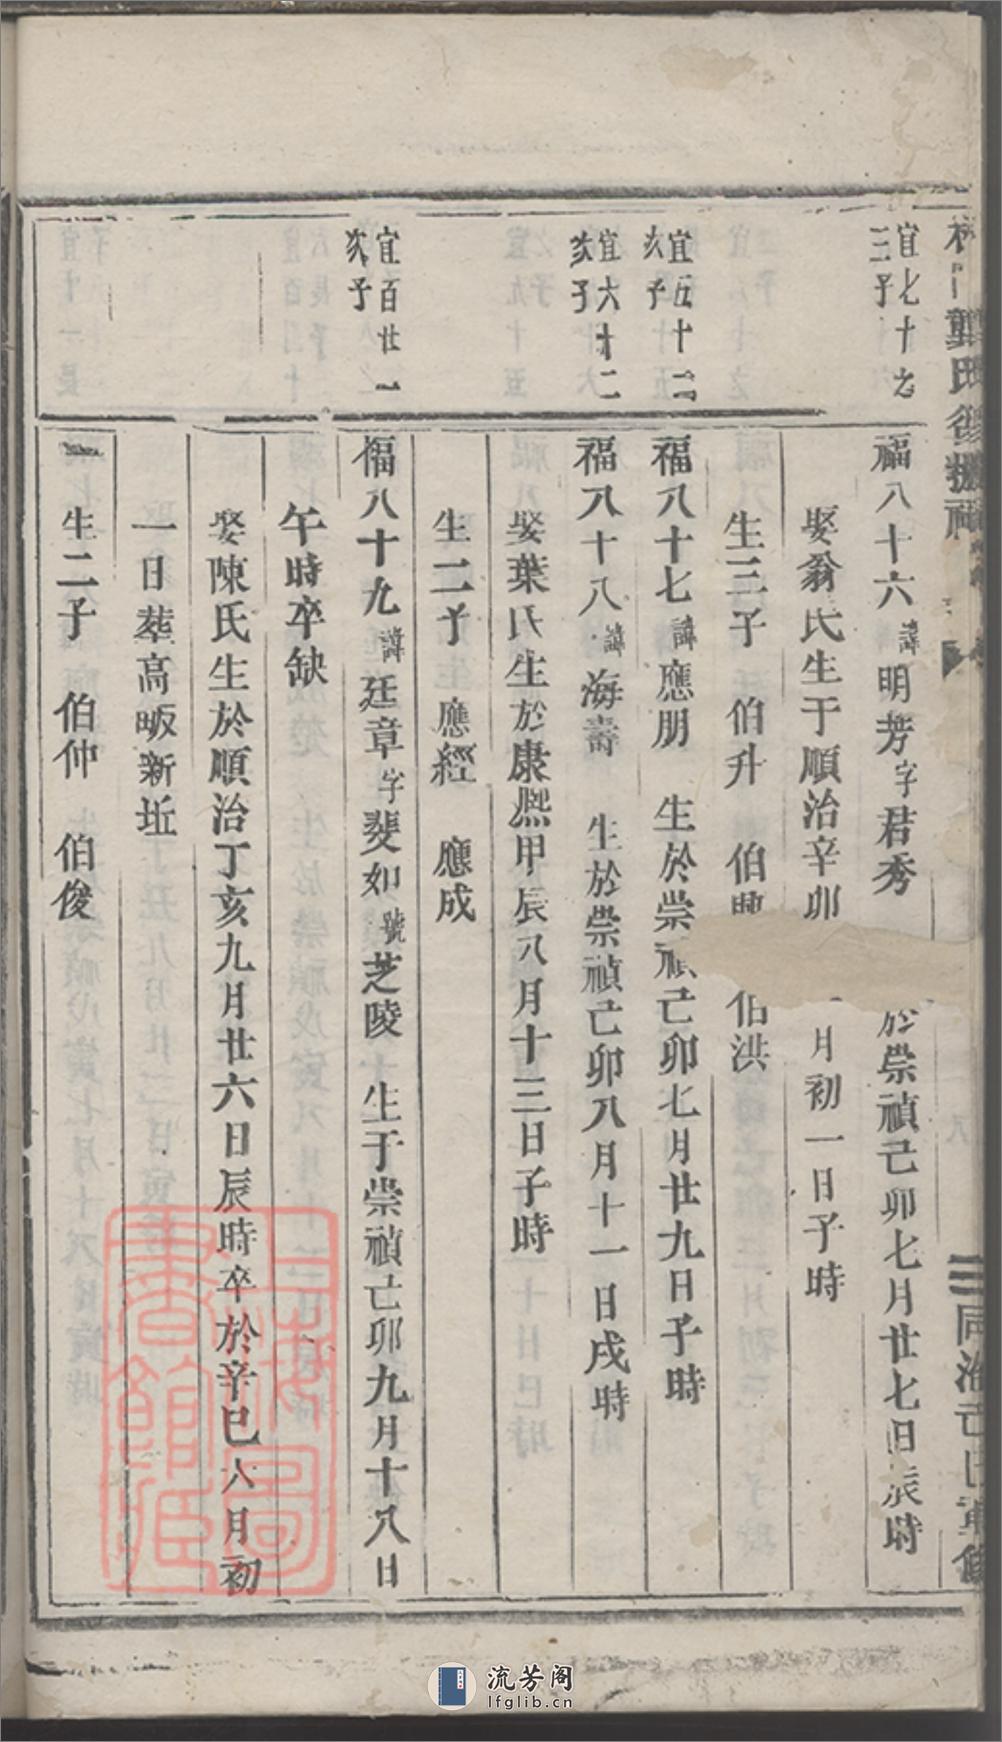 龔氏
同治己巳重修
宜七十之
三子
福八十六諱明芳字君秀
於崇禎己卯七月廿七日辰時
娶翁氏生于順治辛卯
月初一日子時
生三子 伯升 伯興 伯洪
宜五十二
次子
福八十七諱應朋 生於崇禎己卯七月廿九日子時
宜六十二
次子
福八十八諱海壽 生於崇禎己卯八月十一日戌時
娶葉氏生於康熙甲辰八月十三日子時
生二子 應經 應成
宜百廿一
次子
福八十九諱廷章字斐如號芝陵 生于崇禎己卯九月十八日
午時卒缺
娶陳氏生於順治丁亥九月廿六日辰時卒於辛巳六月初
一日葬高畈新坵
生二子 伯仲 伯俊
上海圖
書館藏
流芳阁
lfglib.cn